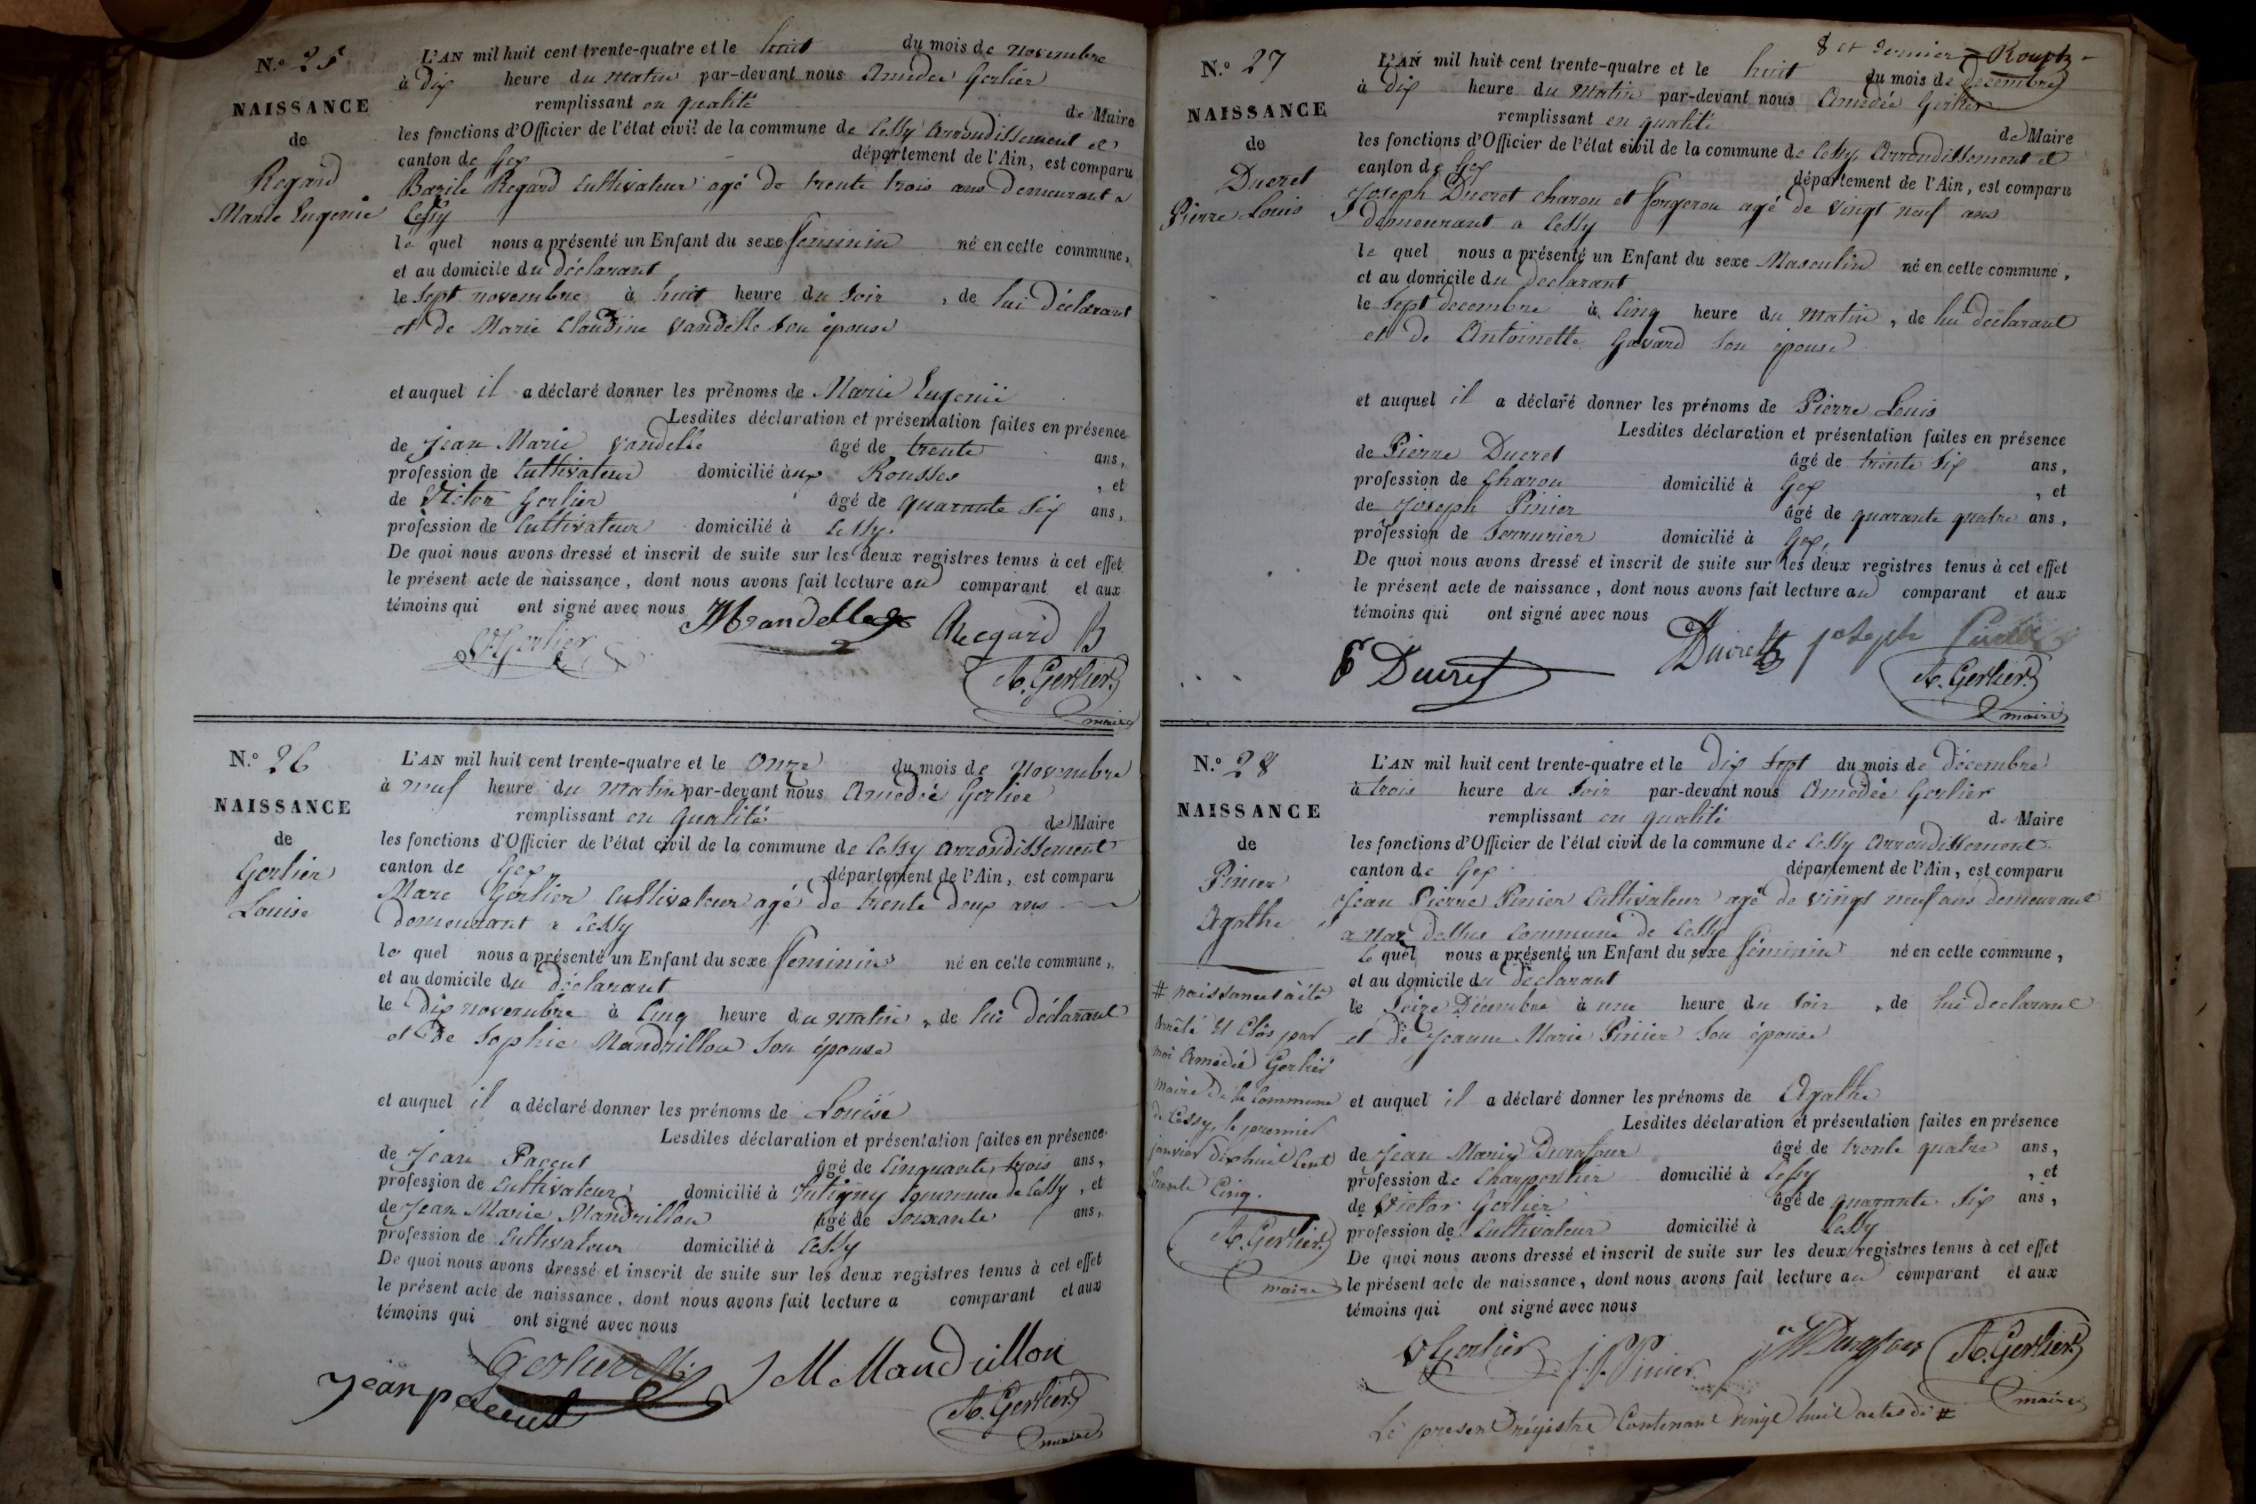 N.° 25
NAISSANCE
de
Regard
Marie Eugenie
L'AN mil huit cent trente-quatre et le huit du mois de novembre
à dix heure du matin par-devant nous Amédée Gerlier
remplissant en qualité de Maire
les fonctions d'Officier de l'état civil de la commune de Cessy arrondissement et
canton de Gex département de l'Ain, est comparu
Bazile Regard cultivateur agé de trente trois ans demeurant a
Cessy
le quel nous a présenté un Enfant du sexe feminin né en cette commune,
et au domicile du déclarant
le sept novembre à huit heure du soir, de lui déclarant
et de Marie Claudine Vandelle son épouse
et auquel il a déclaré donner les prénoms de Marie Eugenie
Lesdites déclaration et présentation faites en présence
de Jean Marie Vandelle âgé de trente ans,
profession de cultivateur domicilié aux Rousses, et
de Victor Gerlier âgé de quarante six ans,
profession de cultivateur domicilié à Cessy.
De quoi nous avons dressé et inscrit de suite sur les deux registres tenus à cet effet
le présent acte de naissance, dont nous avons fait lecture au comparant et aux
témoins qui ont signé avec nous
JMVandelle Regard B
VGerlier
A. Gerlier
maire
N.° 26
NAISSANCE
de
Gerlier
Louise
L'AN mil huit cent trente-quatre et le onze du mois de novembre
à neuf heure du matin par-devant nous Amédée Gerlier
remplissant en qualité de Maire
les fonctions d'Officier de l'état civil de la commune de Cessy arrondissement
canton de Gex département de l'Ain, est comparu
Marc Gerlier cultivateur agé de trente deux ans
demeurant a Cessy
le quel nous a présenté un Enfant du sexe feminin né en cette commune,
et au domicile du déclarant
le dix novembre à cinq heure du matin, de lui déclarant
et de Sophie Mandrillon son épouse
et auquel il a déclaré donner les prénoms de Louise
Lesdites déclaration et présentation faites en présence
de Jean Pacent âgé de cinquante trois ans,
profession de cultivateur domicilié à commune de Cessy, et
de Jean Marie Mandrillon âgé de soixante ans,
profession de cultivateur domicilié à Cessy
De quoi nous avons dressé et inscrit de suite sur les deux registres tenus à cet effet
le présent acte de naissance, dont nous avons fait lecture a comparant et aux
témoins qui ont signé avec nous
Gerlier M
jean pacent J M Mandrillon
A. Gerlier
maire
8 et dernier
N.° 27
NAISSANCE
de
Ducret
Pierre Louis
L'AN mil huit cent trente-quatre et le huit du mois de decembre
à dix heure du matin par-devant nous Amédée Gerlier
remplissant en qualité de Maire
les fonctions d'Officier de l'état civil de la commune de Cessy, arrondissement et
canton de Gex département de l'Ain, est comparu
Joseph Ducret charon et forgeron agé de vingt neuf ans
demeurant a Cessy
le quel nous a présenté un Enfant du sexe Masculin né en cette commune,
et au domicile du declarant
le sept decembre à cinq heure du matin, de lui declarant
et de Antoinette Gavard son épouse
et auquel il a déclaré donner les prénoms de Pierre Louis
Lesdites déclaration et présentation faites en présence
de Pierre Ducret âgé de trente six ans,
profession de charon domicilié à Gex, et
de Joseph Pinier âgé de quarante quatre ans,
profession de serrurier domicilié à Gex,
De quoi nous avons dressé et inscrit de suite sur les deux registres tenus à cet effet
le présent acte de naissance, dont nous avons fait lecture au comparant et aux
témoins qui ont signé avec nous
Ducret joseph Pinier
P Ducret
A. Gerlier
maire
N.° 28
NAISSANCE
de
Pinier
Agathe
L'AN mil huit cent trente-quatre et le dix sept du mois de décembre
à trois heure du soir par-devant nous Amédée Gerlier
remplissant en qualité de Maire
les fonctions d'Officier de l'état civil de la commune de Cessy arrondissement
canton de Gex département de l'Ain, est comparu
Jean Pierre Pinier cultivateur agé de vingt neuf ans demeurant
a dessus commune de Cessy
le quel nous a présenté un Enfant du sexe féminin né en cette commune,
et au domicile du déclarant
le seize Décembre à une heure du soir, de lui declarant
et de Jeanne Marie Pinier son épouse
et auquel il a déclaré donner les prénoms de Agathe
Lesdites déclaration et présentation faites en présence
de Jean Marie Durafour âgé de trente quatre ans,
profession de charpentier domicilié à Cessy, et
de Victor Gerlier âgé de quarante six ans,
profession de cultivateur domicilié à Cessy
De quoi nous avons dressé et inscrit de suite sur les deux registres tenus à cet effet
le présent acte de naissance, dont nous avons fait lecture au comparant et aux
témoins qui ont signé avec nous
VGerlier J.P Pinier A. Gerlier
maire
Le present régistre Contenant vingt huit actes de #
# naissances a été
Arrêté et Clos par
moi Amédée Gerlier
maire de la Commune
de Cessy, le premier
janvier dix huit cent
trente Cinq.
A. Gerlier
maire